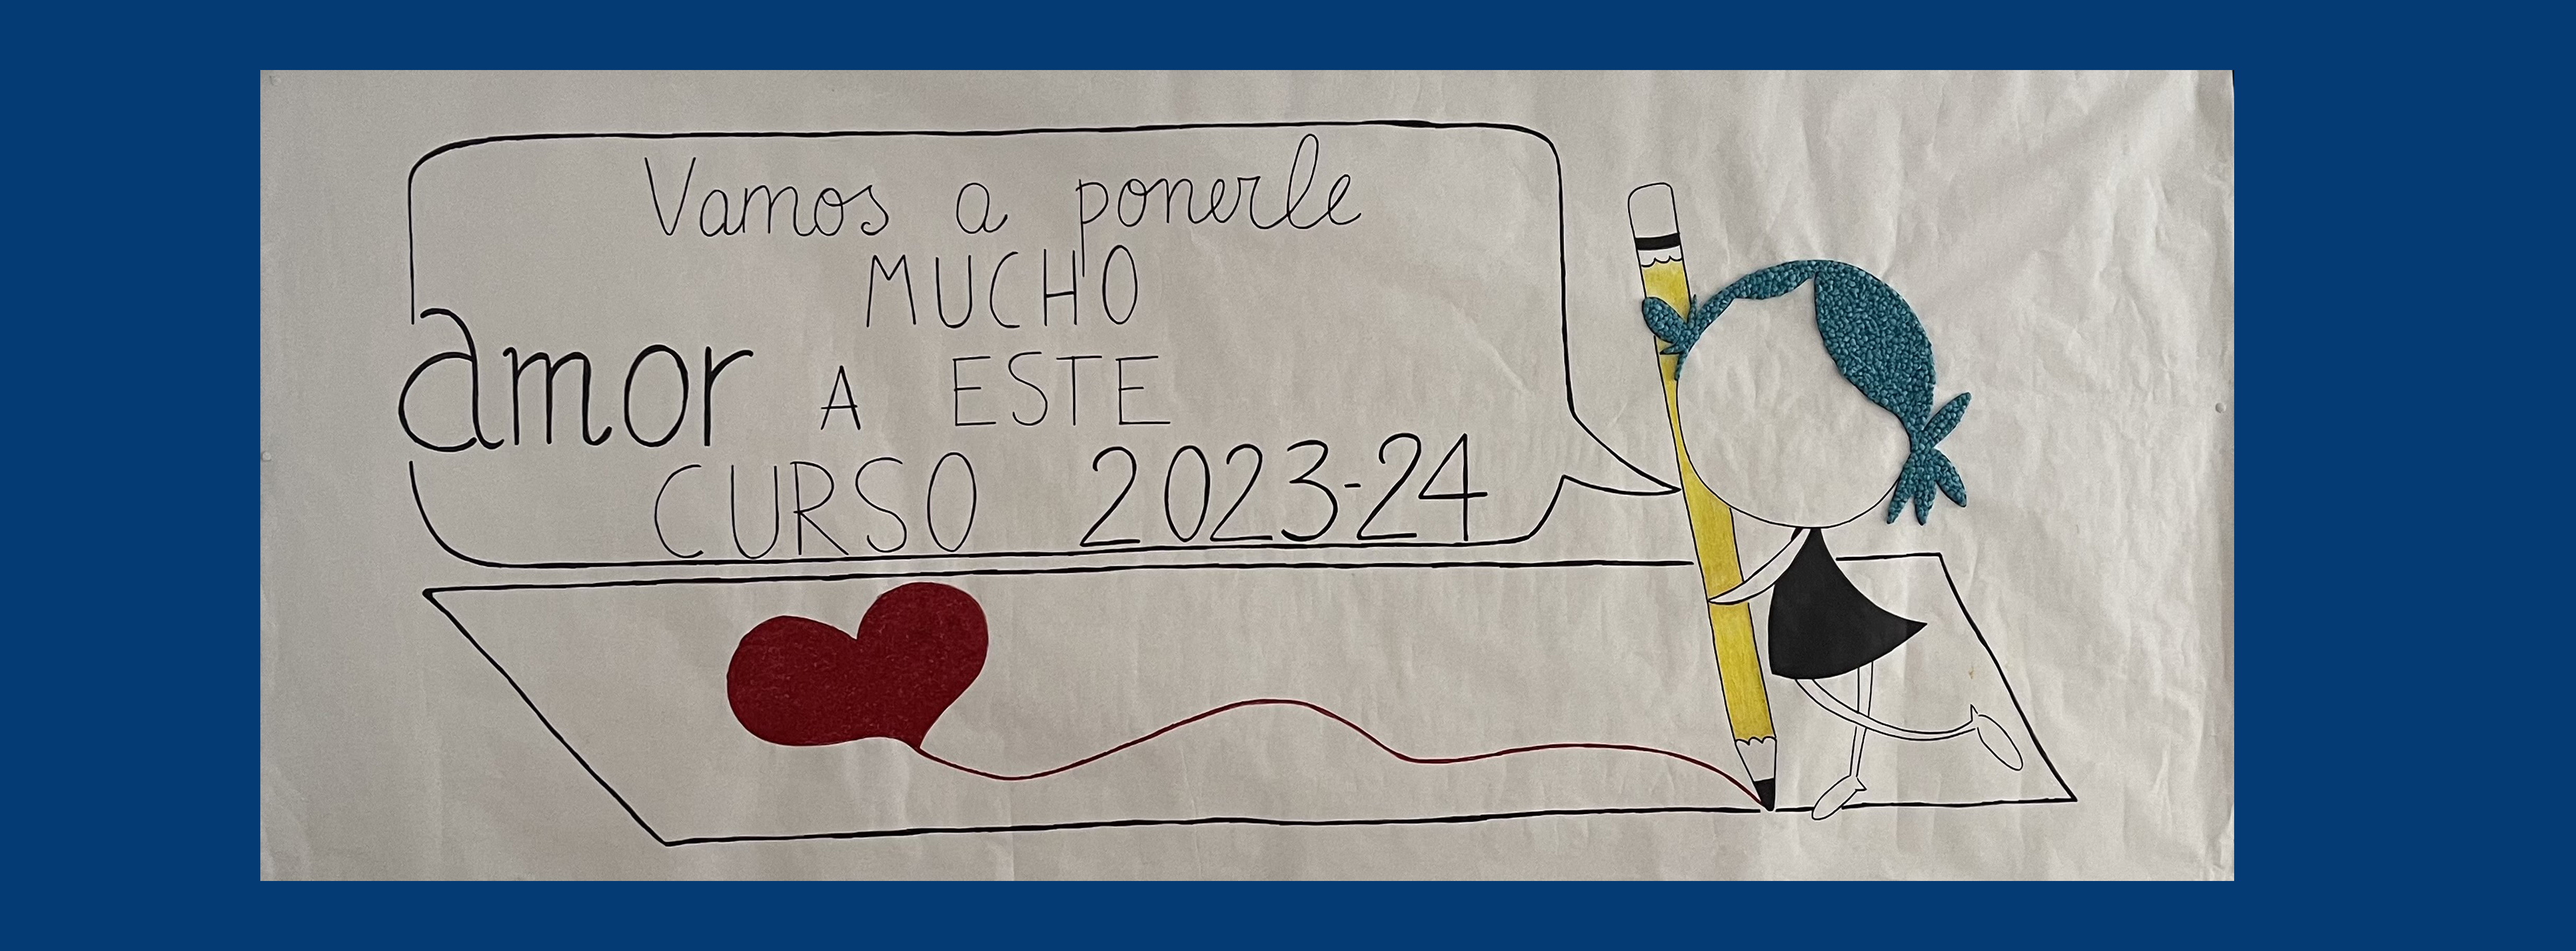 Vamos a ponerle
MUCHO
amor A ESTE
CURSO 2023-24